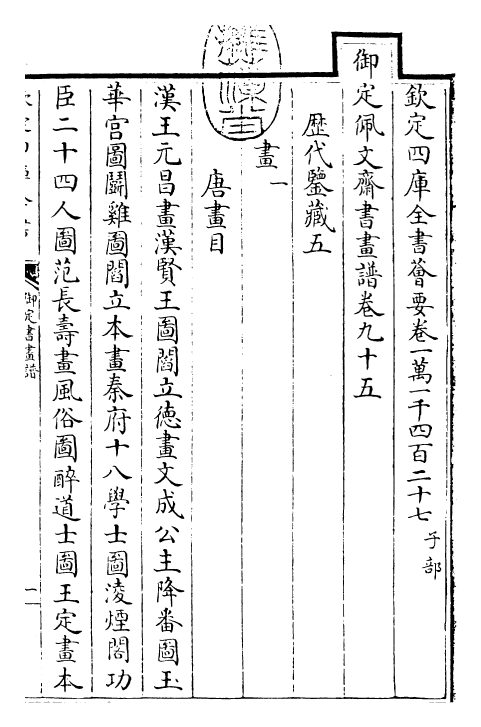 欽定四庫全書薈要卷一萬一千四百二十七 子部
御定佩文齋書畫譜卷九十五
歴代鑒藏五
畫一
唐畫目
漢王元昌畫漢賢王圖閻立徳畫文成公主降番圖玉
華宫圖鬬雞圖閻立本畫秦府十八學士圖淩煙閣功
臣二十四人圖范長壽畫風俗圖醉道士圖王定畫本
御定書畫譜